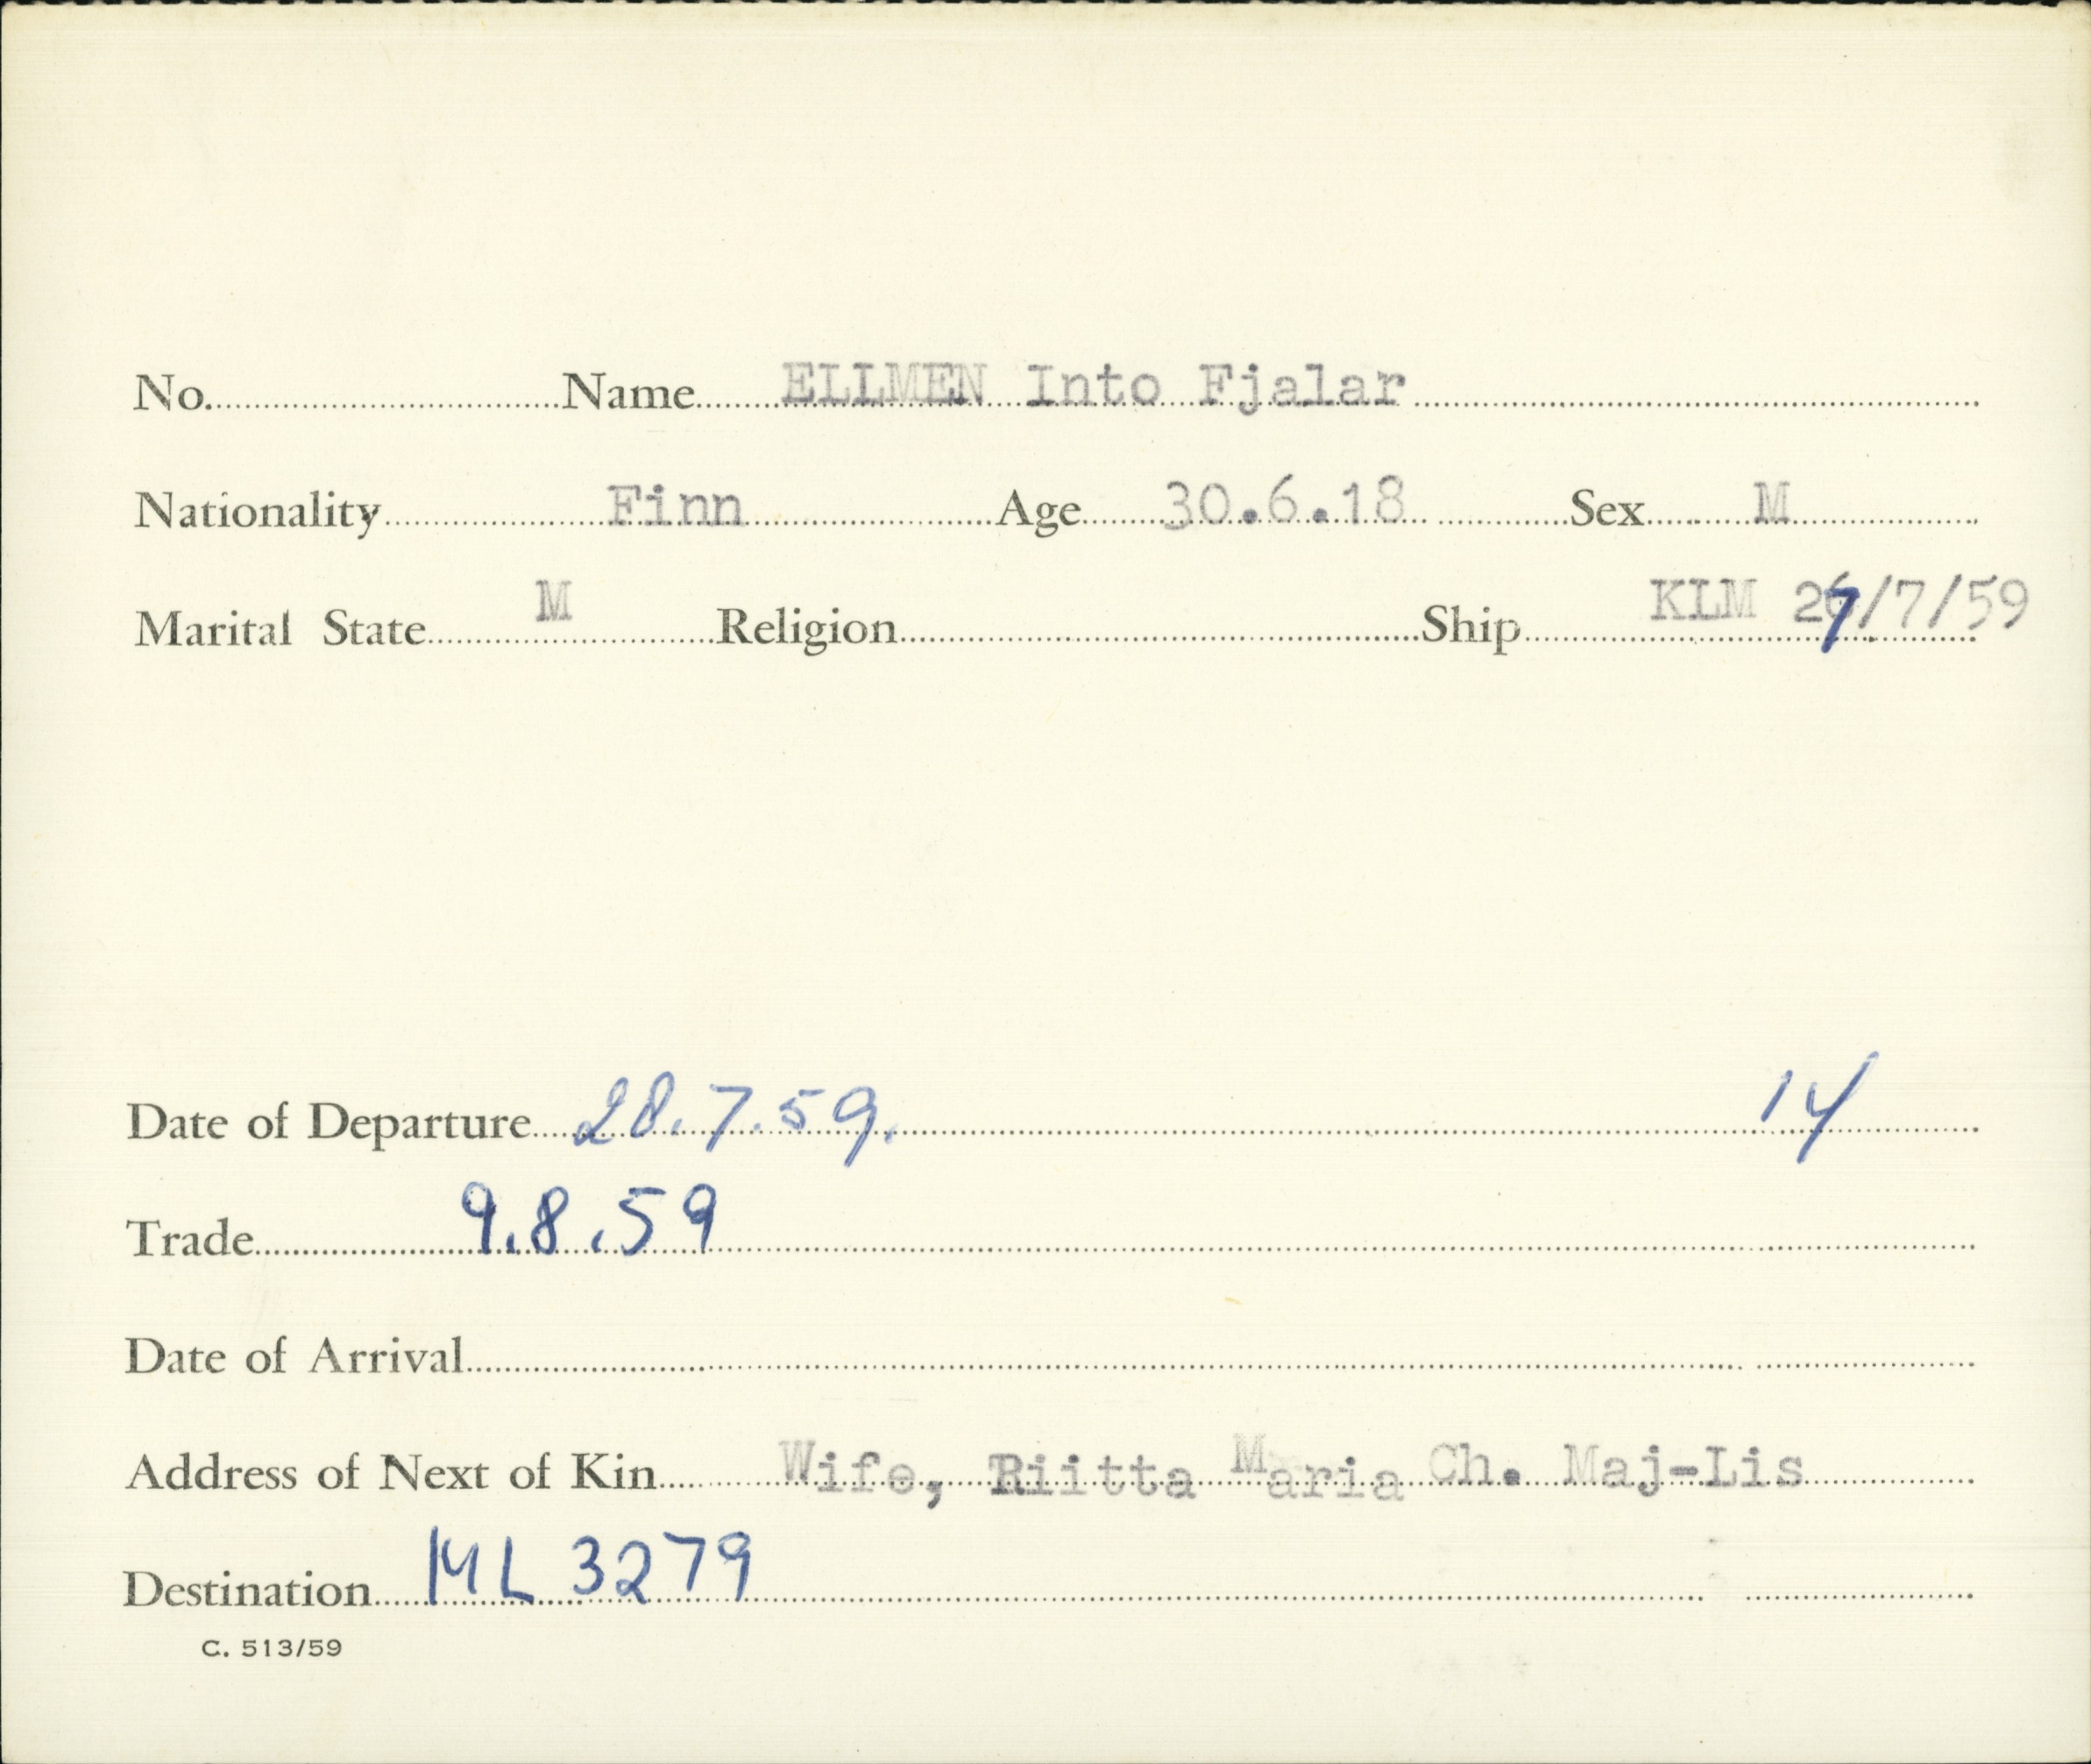 No. Name ELLMEN Into Fjalar
Nationality Finn Age 30.6.18 Sex M
Marital State M Religion Ship KLM 27/7/59
Date of Departure 28.7.59. 14
Trade 9.8.59
Date of Arrival
Address of Next of Kin Wife, Riitta Maria Ch. Maj-Lis
Destination ML 3279
C. 513/59